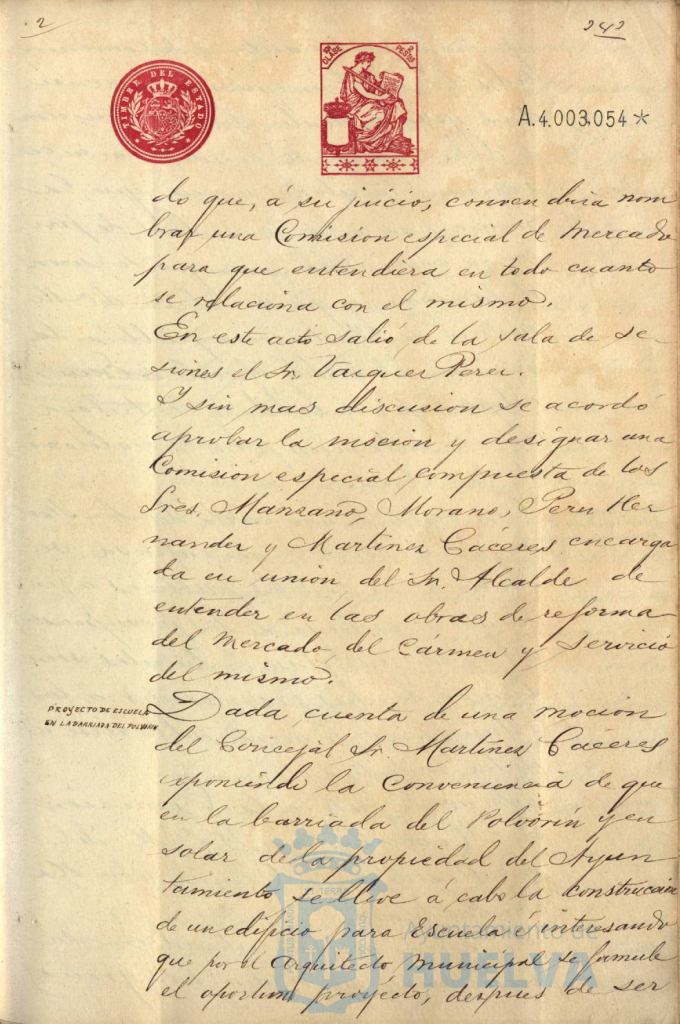 2
242
TIMBRE DEL ESTADO
10ª CLASE 2 PESTAS
A.4.003.054*
do que, á su juicio, convendria nom
brar una Comision especial de Mercado
para que entendiera en todo cuanto
se relaciona con el mismo.
En este acto salió de la sala de se-
siones el Sr. Vazquez Perez.
Y sin mas discusion se acordó
aprobar la mocion y designar una
Comision especial compuesta de los
Srés. Manzano, Morano, Perez Her
nandez y Martinez Cáceres encarga
da en union del Sr. Alcalde de
entender en las obras de reforma
del Mercado del Cármen y servicio
del mismo.
PROYECTO DE ESCUELA
EN LA BARRIADA DEL POLVORIN
Dada cuenta de una mocion
del Concejal Sr. Martinez Cáceres
exponiendo la conveniencia de que
en la barriada del Polvorin y en
solar de la propiedad del Ayun
tamiento se lleve á cabo la construccion
de un edificio para Escuela é interesando
que por el Arquitecto Municipal se formule
el oportuno proyecto, despues de ser
Ayuntamiento de
HUELVA